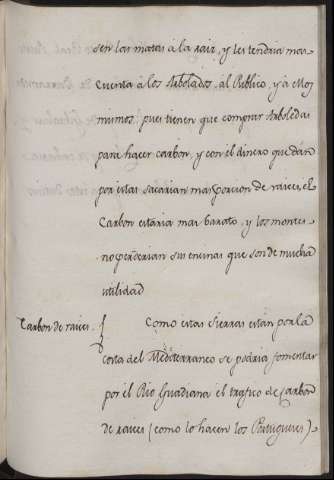 sen las matas á la raiz, y les tendria mas
cuenta á los Arbolados, al Publico, y á Mos
mismos, pues tienen que comprar Arboledas
para hacer carbon, y con el dinero que dán
por estas sacarian mas porcion de raices, el
Carbon estaria mas barato, y los montes
no perderian sus encinas que son de mucha
utilidad
Carbon de raices. Como estas Sierras están por la
costa del Mediterraneo se podria fomentar
por el Rio Guadiana el trafico de Carbon
de raices (como lo hacen los Portugueses).